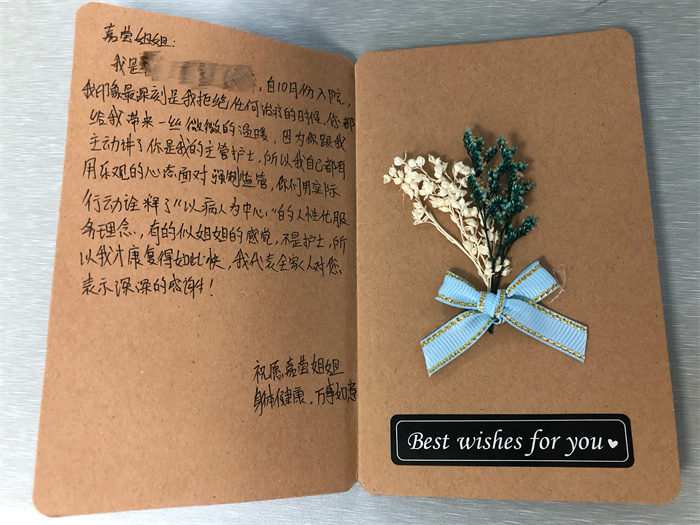 嘉莹姐姐:
我是 ,自10月份入院,
我印象最深刻是我拒绝任何治疗的时候,您都
给我带来一丝微微的温暖,因为你跟我
主动讲了你是我的主管护士,所以我自己都有
用乐观的心态面对强制监管,你们用实际
行动诠释了“以病人为中心,”的人性化服
务理念,有的似姐姐的感觉,不是护士,所
以我才康复得如此快,我代表全家人对您
表示深深的感谢!
祝愿嘉莹姐姐
身体健康,万事如意
Best wishes for you